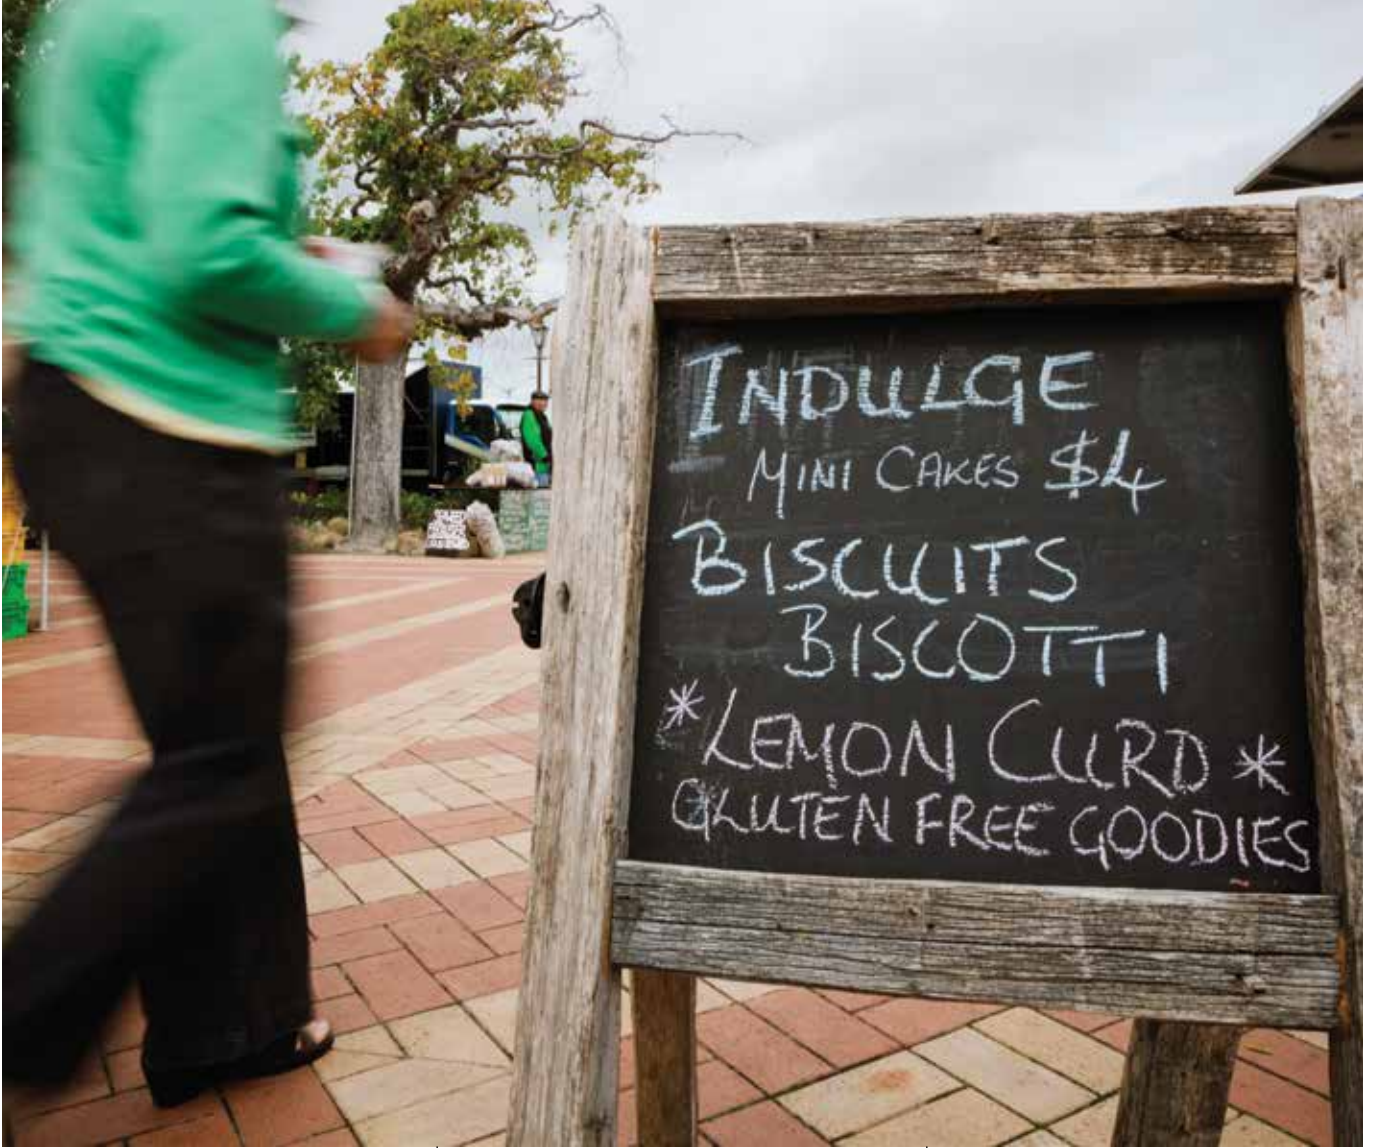 INDULGE
MINI CAKES $4
BISCUITS
BISCOTTI
*LEMON CURD*
GLUTEN FREE GOODIES